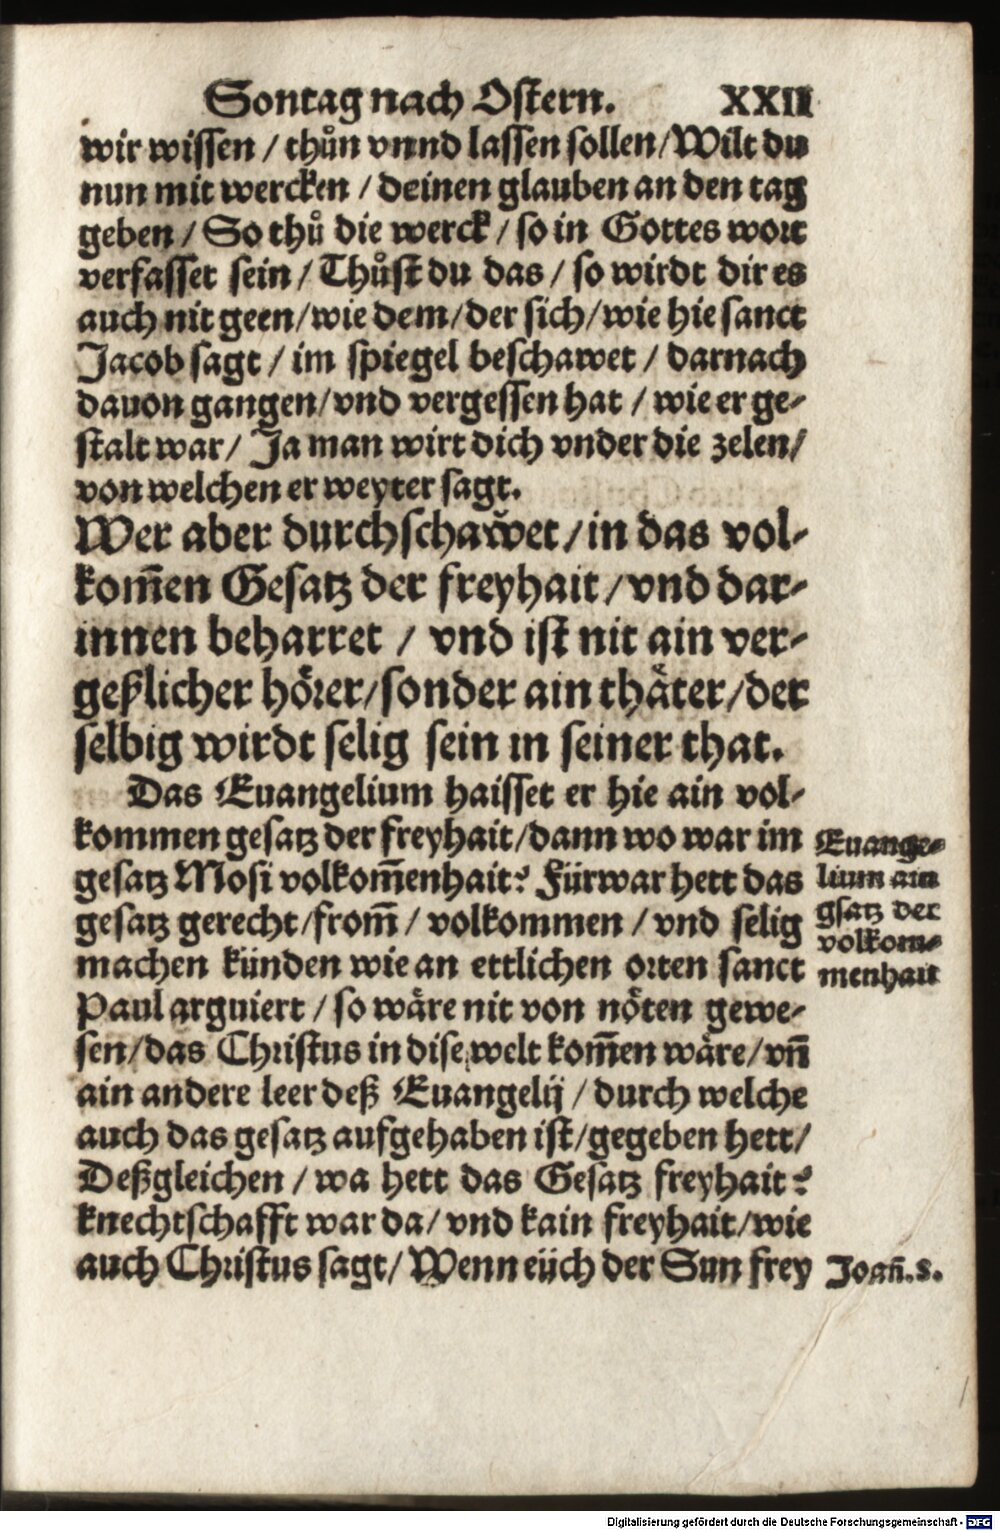 Sontag nach Ostern. XXII
wir wissen / thůn vnnd lassen sollen / Wilt du
nun mit wercken / deinen glauben an den tag
geben / So thů die werck / so in Gottes wort
verfasset sein / Thůst du das / so wirdt dir es
auch nit geen / wie dem / der sich / wie hie sanct
Jacob sagt / im spiegel beschawet / darnach
dauon gangen / vnd vergessen hat / wie er ge-
stalt war / Ja man wirt dich vnder die zelen /
von welchen er weyter sagt.
Wer aber durchschawet / in das vol-
kom̄en Gesatz der freyhait / vnd dar-
innen beharret / vnd ist nit ain ver-
geßlicher hörer / sonder ain thäter / der
selbig wirdt selig sein in seiner that.
Das Euangelium haisset er hie ain vol-
kommen gesatz der freyhait / dann wo war im
gesatz Mosi volkom̄enhait? Fürwar hett das
gesatz gerecht / from̄ / volkommen / vnd selig
machen künden wie an ettlichen orten sanct
Paul arguiert / so wäre nit von nöten gewe-
sen / das Christus in dise welt kom̄en wäre / vn̄
ain andere leer deß Euangelij / durch welche
auch das gesatz aufgehaben ist / gegeben hett /
Deßgleichen / wa hett das Gesatz freyhait?
knechtschafft war da / vnd kain freyhait / wie
auch Christus sagt / Wenn eüch der Sun frey
Euange-
lium ain
gsatz der
volkom-
menhait
Joan̄. 8.
Digitalisierung gefördert durch die Deutsche Forschungsgemeinschaft - DFG